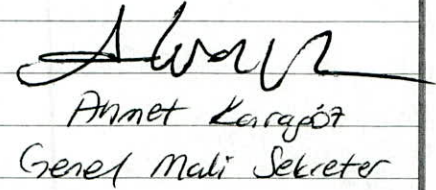 Ahmet Karagöz
Genel Mali Sekreter